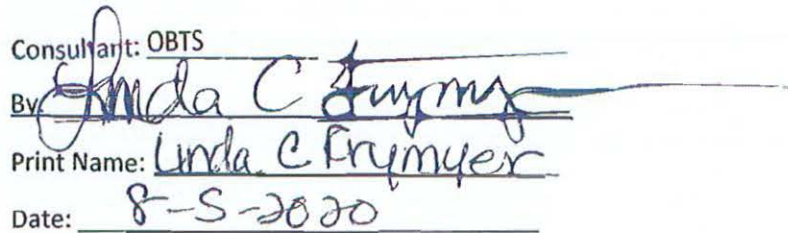 Consultant: OBTS
By Linda C Frymyer
Print Name: Linda C Frymyer
Date: 8-5-2020